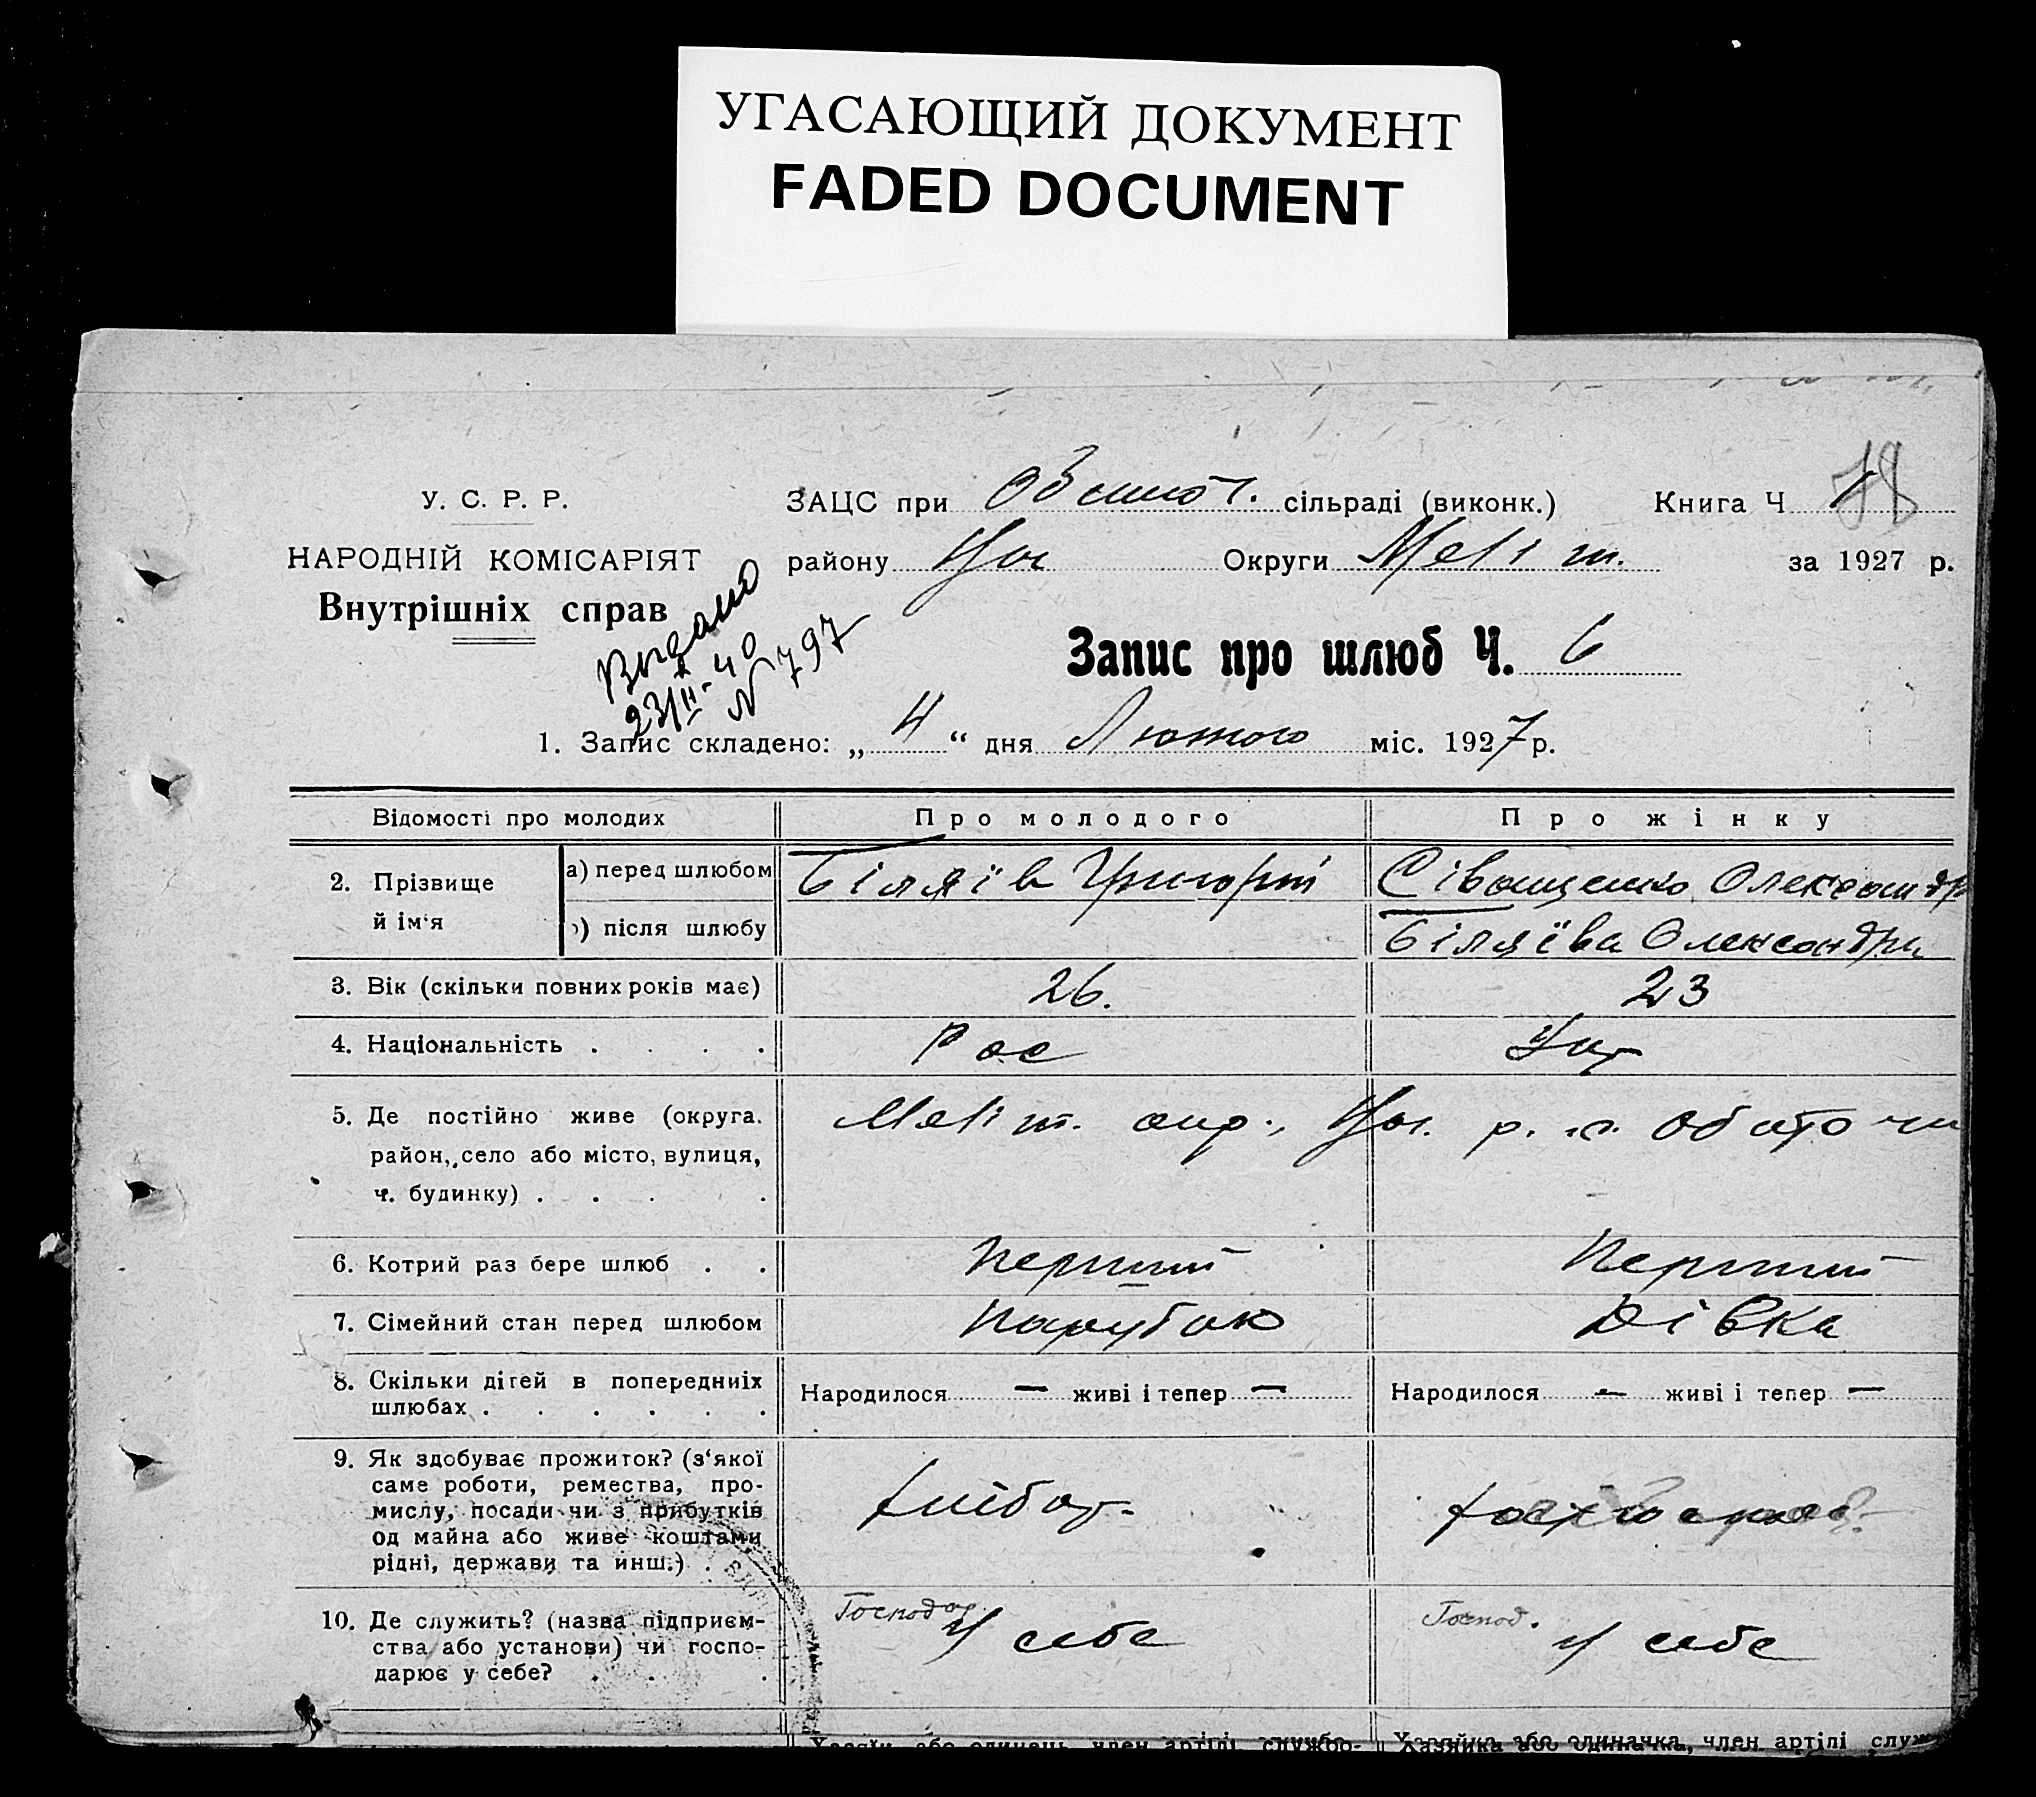 УГАСАЮЩИЙ ДОКУМЕНТ
FADED DOCUMENT
У. С. Р. Р.
ЗАЦС при сільраді (виконк.) Книга Ч
НАРОДНІЙ КОМІСАРІЯТ
району Округи Меліт. за 1927 р.
Внутрішніх справ
Видано
23/II-40
N 797
Запис про шлюб Ч. 6
1. Запис складено: „ 4 “ дня Лютого міс. 1927 р.
Відомості про молодих
Про молодого
Про жінку
2. Прізвище й ім‘я
а) перед шлюбом
Біляїв Григорій
Сіващенко Олександр
б) після шлюбу
Біляїва Олександра
3. Вік (скільки повних років має)
26.
23
4. Національність . . . .
Рос
Укр
5. Де постійно живе (округа.
район, село або місто, вулиця,
ч. будинку) . . . .
Меліт. окр., р. с. Обиточн
6. Котрий раз бере шлюб . .
Перший
Перший
7. Сімейний стан перед шлюбом
Парубок
Дівка
8. Скільки дітей в попередниіх
шлюбах . . . . . .
Народилося — живі і тепер —
Народилося — живі і тепер —
9. Як здобуває прожиток? (з‘якої
саме роботи, ремества, про-
мислу, посади чи з прибутків
од майна або живе коштами
рідні, держави та инш.) .
хлібор.
10. Де служить? (назва підприєм-
ства або установи) чи госпо-
дарює у себе? . . .
Господар.
у себе
Господ.
у себе
Хазяїн або одинець, член артілі, службо-
Хазяйка або одиначка, член артілі служ